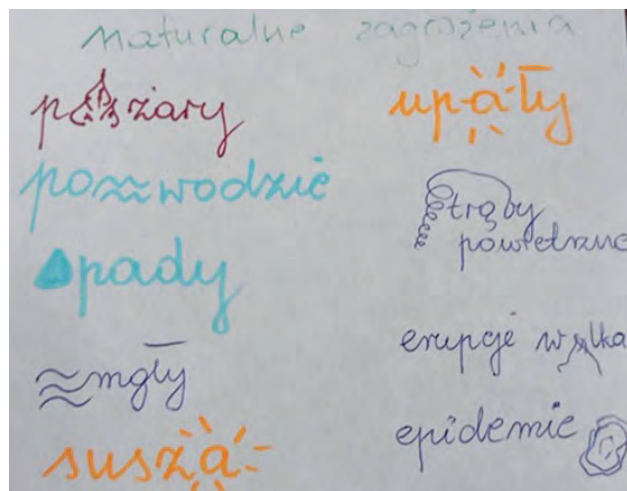 naturalne zagrożenia
pożary
powodzie
opady
mgły
susza
upały
trąby
powietrzne
erupcje wulka
epidemie